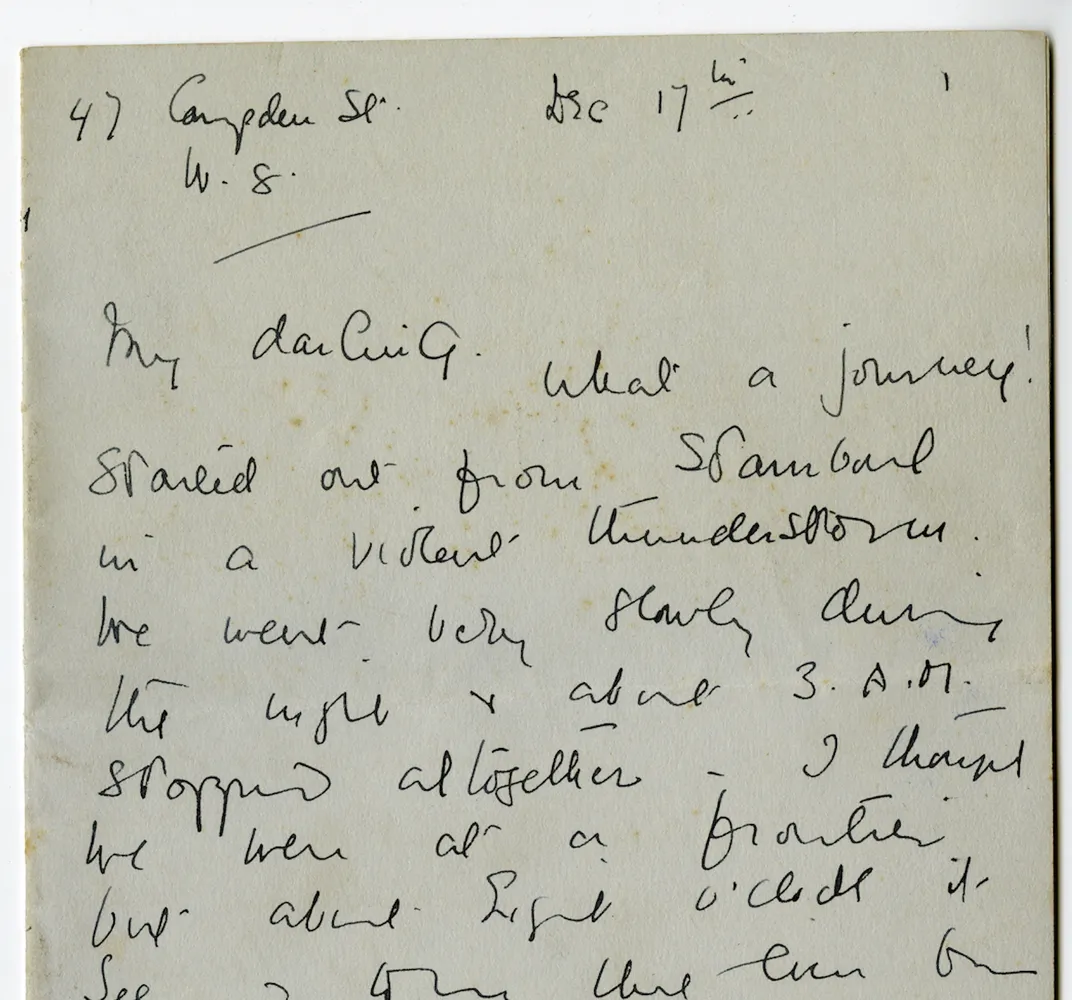 47 Campden St. Dec 17th 1
W. 8.
My darling.
What a journey!
Started out from Stamboul
in a violent thunderstorm.
We went very slowly during
the night & about 3. A.M.
stopped altogether - I thought
we were at a frontier
but about Eight o'clock it